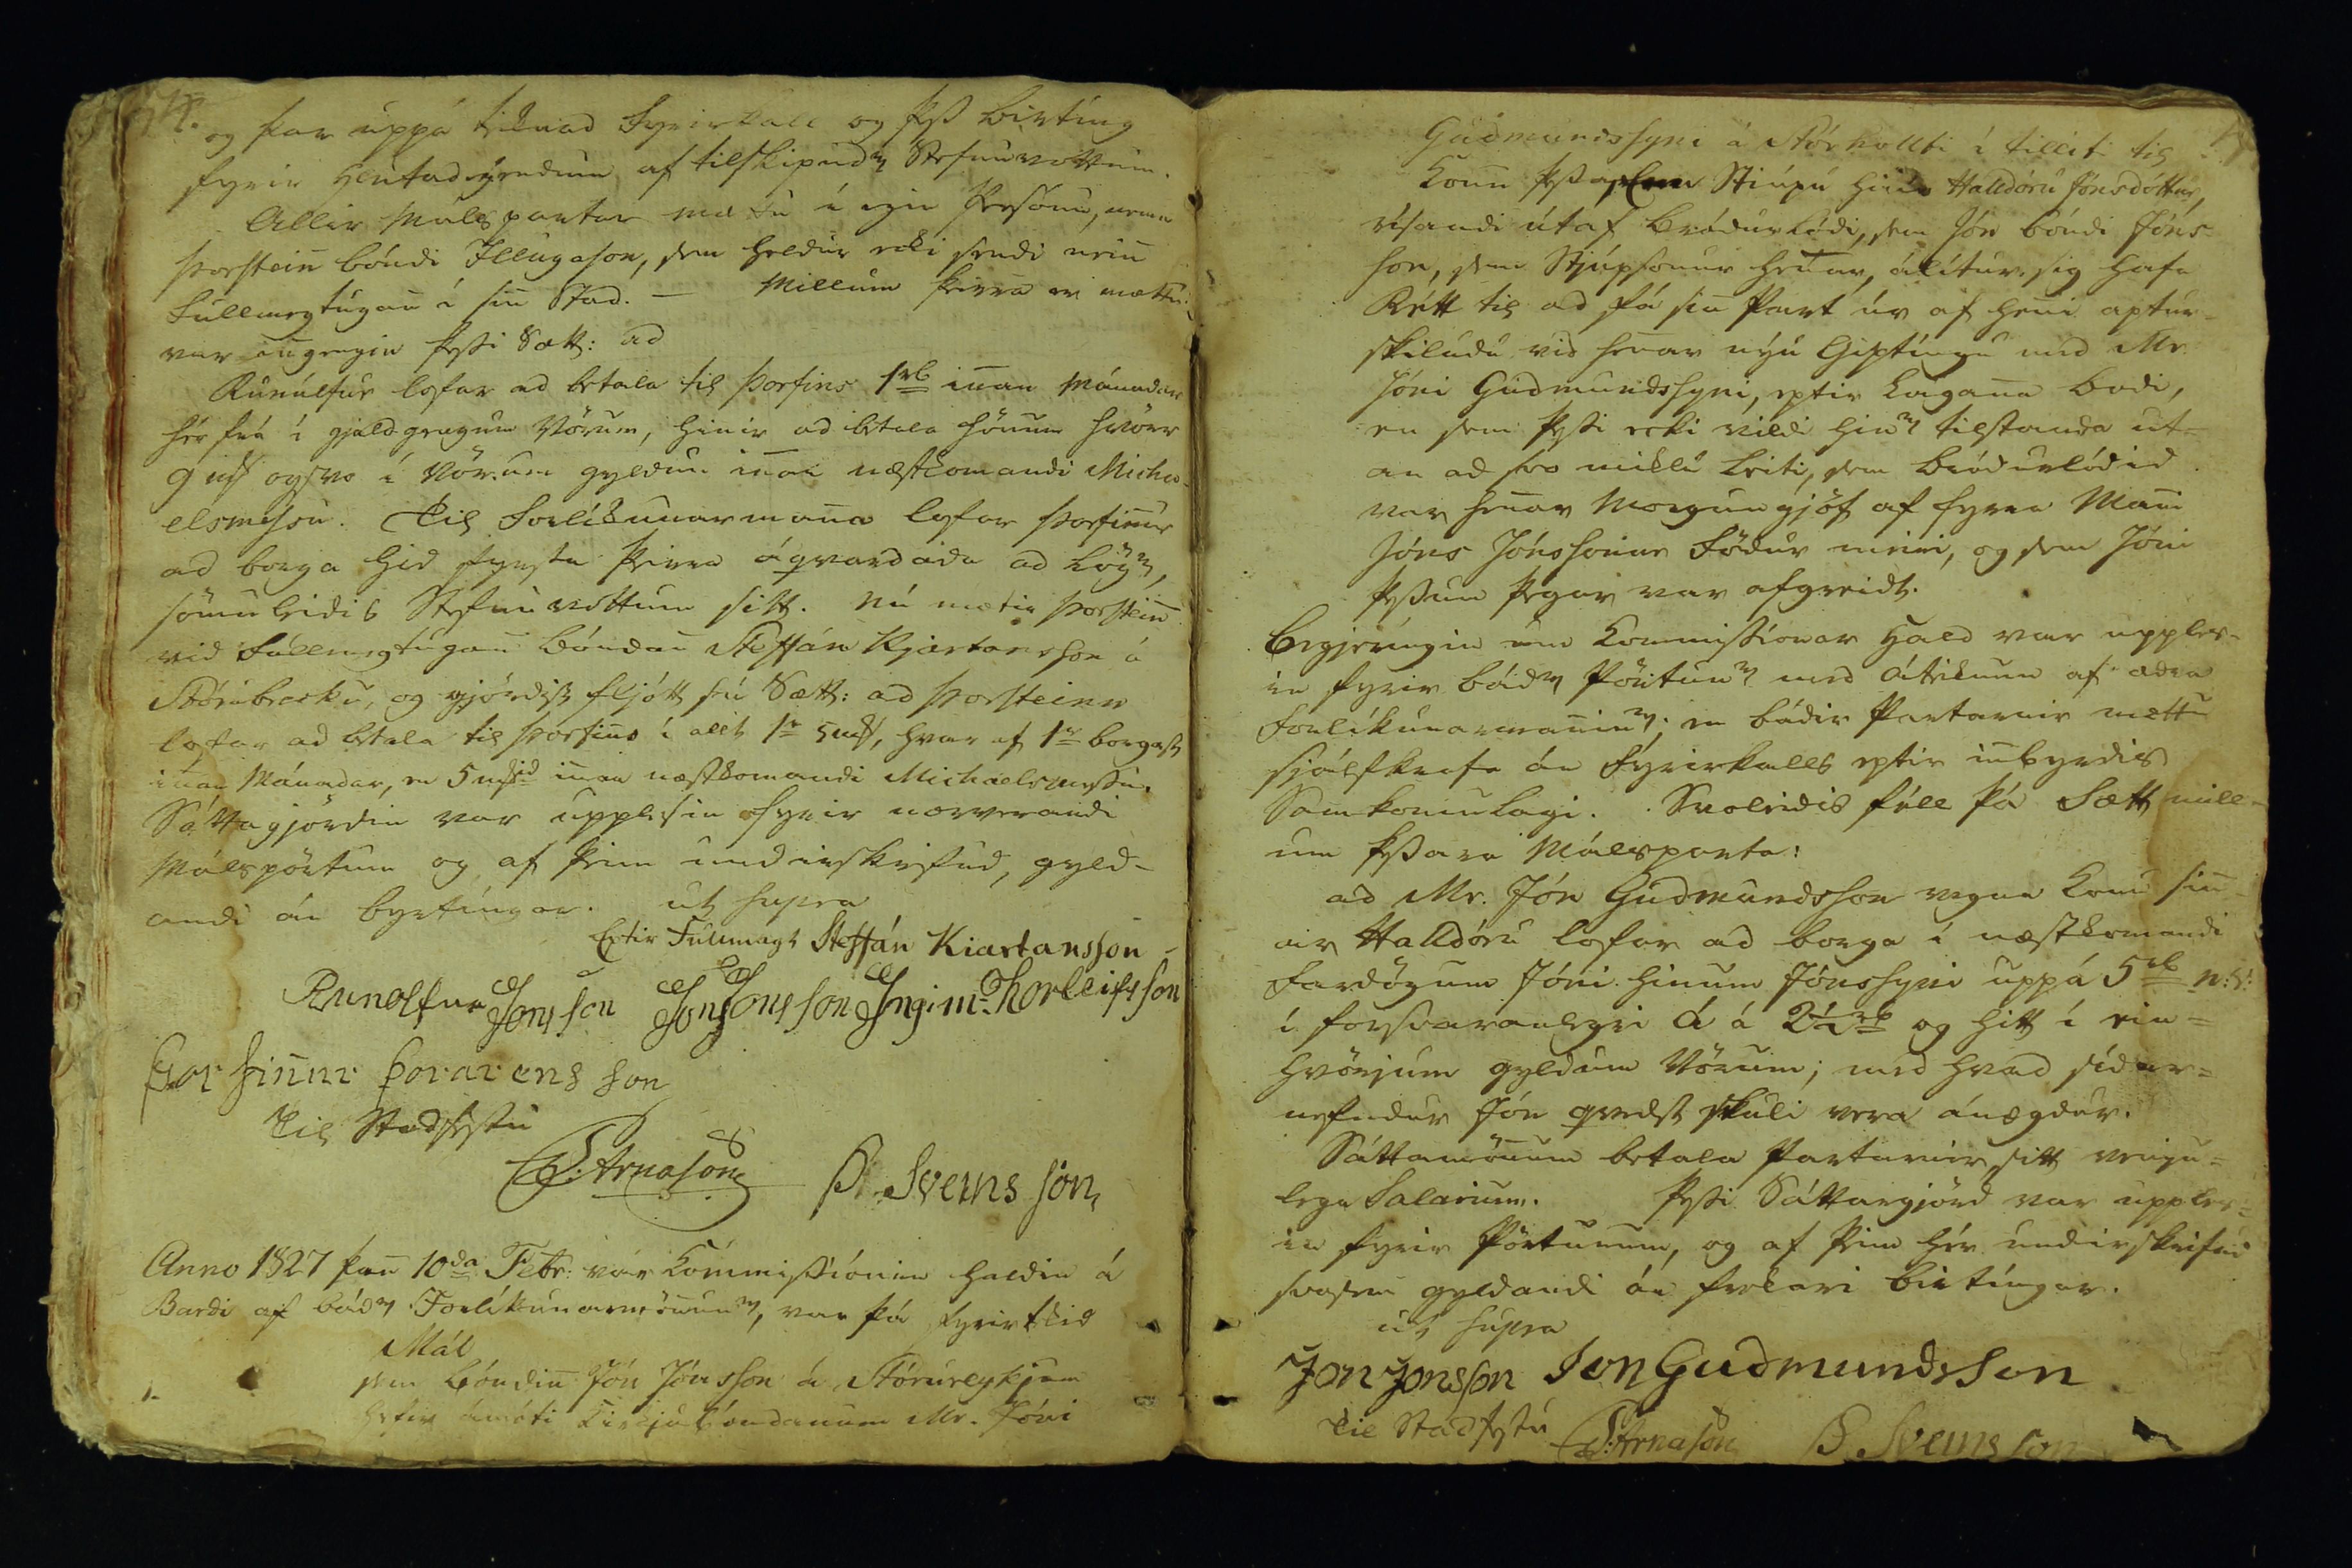 og þar uppá teiknad Fyrirkall og þess birting
fyrir hlutadeigendum af tilskipudum Stefnuvottum.
Allir Málspartar mættu í egin Persónu, nema
Þorsteinn bóndi Illugason, sem heldur ecki sendi neinn
Fullmegtugann í sinn Stad. — Millum þeirra er mættu
var inngengin þessi Sætt: ad
Runúlfur lofar ad betala til Þorfins 1rb innan Mánadar
hér frá í gjaldgengum Vörum, hinir ad betala hönum hvörr
9 mk ogsvo í Vörum gyldum innan næstkomandi Micha-
elsmessu. Til Forlíkunarmanna lofar Þorfinnur
ad borga hid fyrsta þeirra áqvardada ad lögum,
sömuleidis Stefnuvottum sitt. Nú mætir Þorsteinn
vid Fullmegtugann bóndan Steffán Kjartansson á
Stórubrecku, og gjördist fljótt sú Sætt: ad Þorsteinn
lofar ad betala til Þorfins í allt 1r 5mk, hvar af 1r borgast
innan Mánadar, en 5 mkid innan næstkomandi Michaelsmessu.
Sáttagjördin var upplesin fyrir nærverandi
Málspörtum og af þeim undirskrifud, gyld-
andi án byrtingar. ut supra
Eptir Fullmagt Steffán Kiartansson
Runolfur Jonsson Jon Jonsson Ingim: Thorleifsson
Þorfinnur Þorarensson
Til Stadfestu
P: Arnason Þ. Sveinsson,
Anno 1827 þan 10da Febr: var Commissiónin haldin á
Bardi af bádum Forlíkunarmönnum, var þá fyrirtekid
Mál
sem Bóndinn Jón Jónsson á Stórureykjum
hefir ámóti Kirkjubóndanum Mr. Jóni
Gudmundssyni á Stórhollti í tillit til
Konu þessa, Stiúpu hins Halldóru Jónsdóttur,
rísandi útaf bródurlódi, sem Jón bóndi Jóns-
son, sem Stjúpsonur hennar, álítur sig hafa
Rétt til ad fá sin Part úr af henni aptur-
skiludu vid hennar nýu Giptingu med Mr.
Jóni Gudmundssyni, eptir Laganna bodi,
en sem þessi ecki vildi hinum tilstanda ut-
an ad svo miklu leiti, sem bródurlódid
var hennar Morgungjöf af fyrra Manni
Jóns Jónssonar Födur meini, og sem Jóni
þessum þegar var afgreidt.
Begjeringin um Commissionar Hald var upples-
in fyrir bádum Pörtunum med áteiknun af ædra
Forlíkunarmanninum; en bádir Partarnir mættu
sjálfkrafa án Fyrirkalls eptir innbyrdis
Samkomulagi. Svoleidis féll þá Sætt mill-
um þessara Málsparta:
ad Mr. Jón Gudmundsson vegna Konu sinn-
ar Halldóru lofar ad borga í næstkomandi
Fardögum Jóni hinum Jónssyni uppá 5rb n:S:
í forsvaranlegri Á á 2½rb og hitt í ein=
hvörjum gyldum Vörum; med hvad sídar=
nefndur Jón qvedst skuli vera ánægdur.
Sáttamönnum betala Partarnir sitt venju=
lega Salarium. Þessi Sáttargjörd var upples=
in fyrir Pörtunum, og af þeim hér undirskrifud
svosem gyldandi án frekari birtingar.
ut supra
Jon Jonsson Jon Gudmundsson
Til Stadfestu P: Arnason Þ. Sveinsson